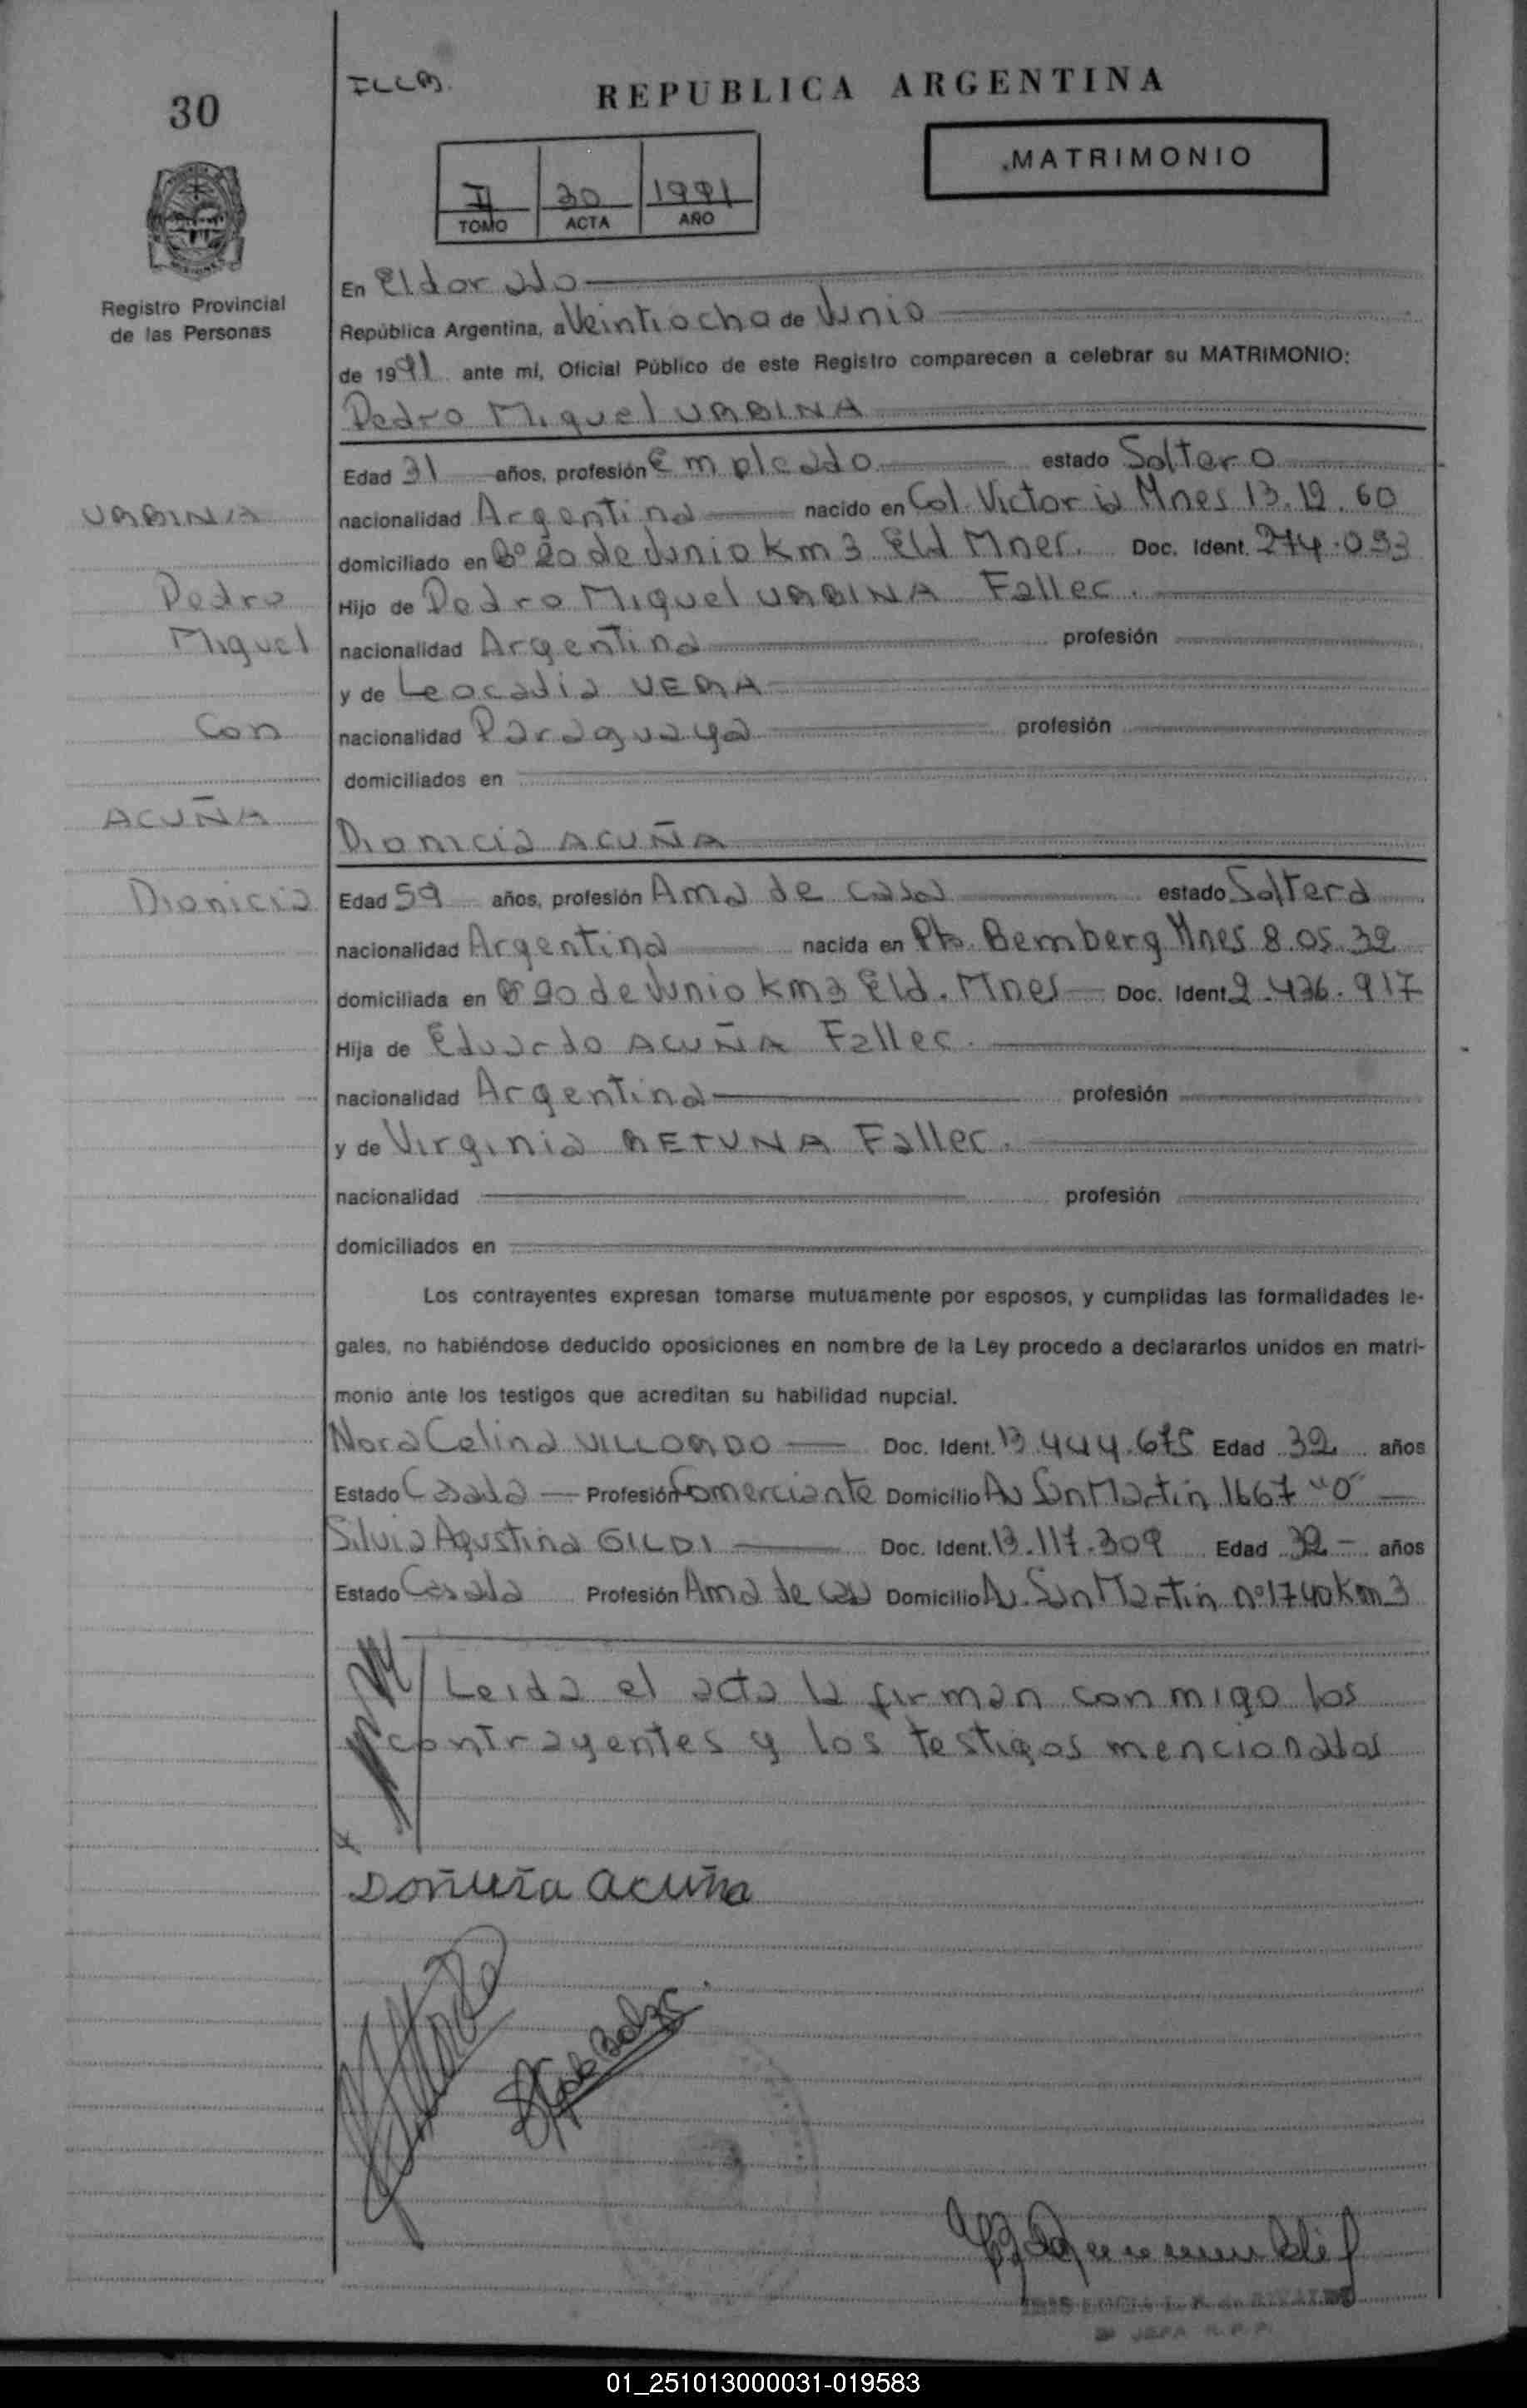 30
REPUBLICA ARGENTINA
MATRIMONIO
II 30 1991
TOMO ACTA AÑO
Registro Provincial
de las Personas
En Eldorado
República Argentina, a Veintiocho de Junio
de 1991 ante mí, Oficial Público de este Registro comparecen a celebrar su MATRIMONIO:
Pedro Miguel URBINA
Edad 31 años, profesión Empleado estado Soltero
URBINA
nacionalidad Argentina nacido en Col. Victoria Mnes 13.12.60
domiciliado en Bº 20 de Junio Km 3 Eld Mnes. Doc. Ident. 274.093
Pedro
Hijo de Pedro Miguel URBINA Fallec.
Miguel
nacionalidad Argentina profesión
y de Leocadia VERA
Con
nacionalidad Paraguaya profesión
domiciliados en
ACUÑA
Dionicia ACUÑA
Dionicia
Edad 59 años, profesión Ama de casa estado Soltera
nacionalidad Argentina nacida en Pto. Bemberg Mnes 8.05.32
domiciliada en Bº 20 de Junio Km3 Eld. Mnes Doc. Ident. 2.436.917
Hija de Eduardo ACUÑA Fallec.
nacionalidad Argentina profesión
y de Virginia RETUNA Fallec.
nacionalidad profesión
domiciliados en
Los contrayentes expresan tomarse mutuamente por esposos, y cumplidas las formalidades le-
gales, no habiéndose deducido oposiciones en nombre de la Ley procedo a declararlos unidos en matri-
monio ante los testigos que acreditan su habilidad nupcial.
Nora Celina VILLORDO Doc. Ident. 13.444.675 Edad 32 años
Estado Casada Profesión Comerciante Domicilio Av San Martin 1667 "O"
Silvia Agustina GILDI Doc. Ident. 13.117.309 Edad 32 años
Estado Casada Profesión Ama de casa Domicilio Av. San Martin nº 1740 Km 3
Leida el acta la firman conmigo los
contrayentes y los testigos mencionados
Doñicia acuña
JEFA R.P.P.
01_251013000031-019583